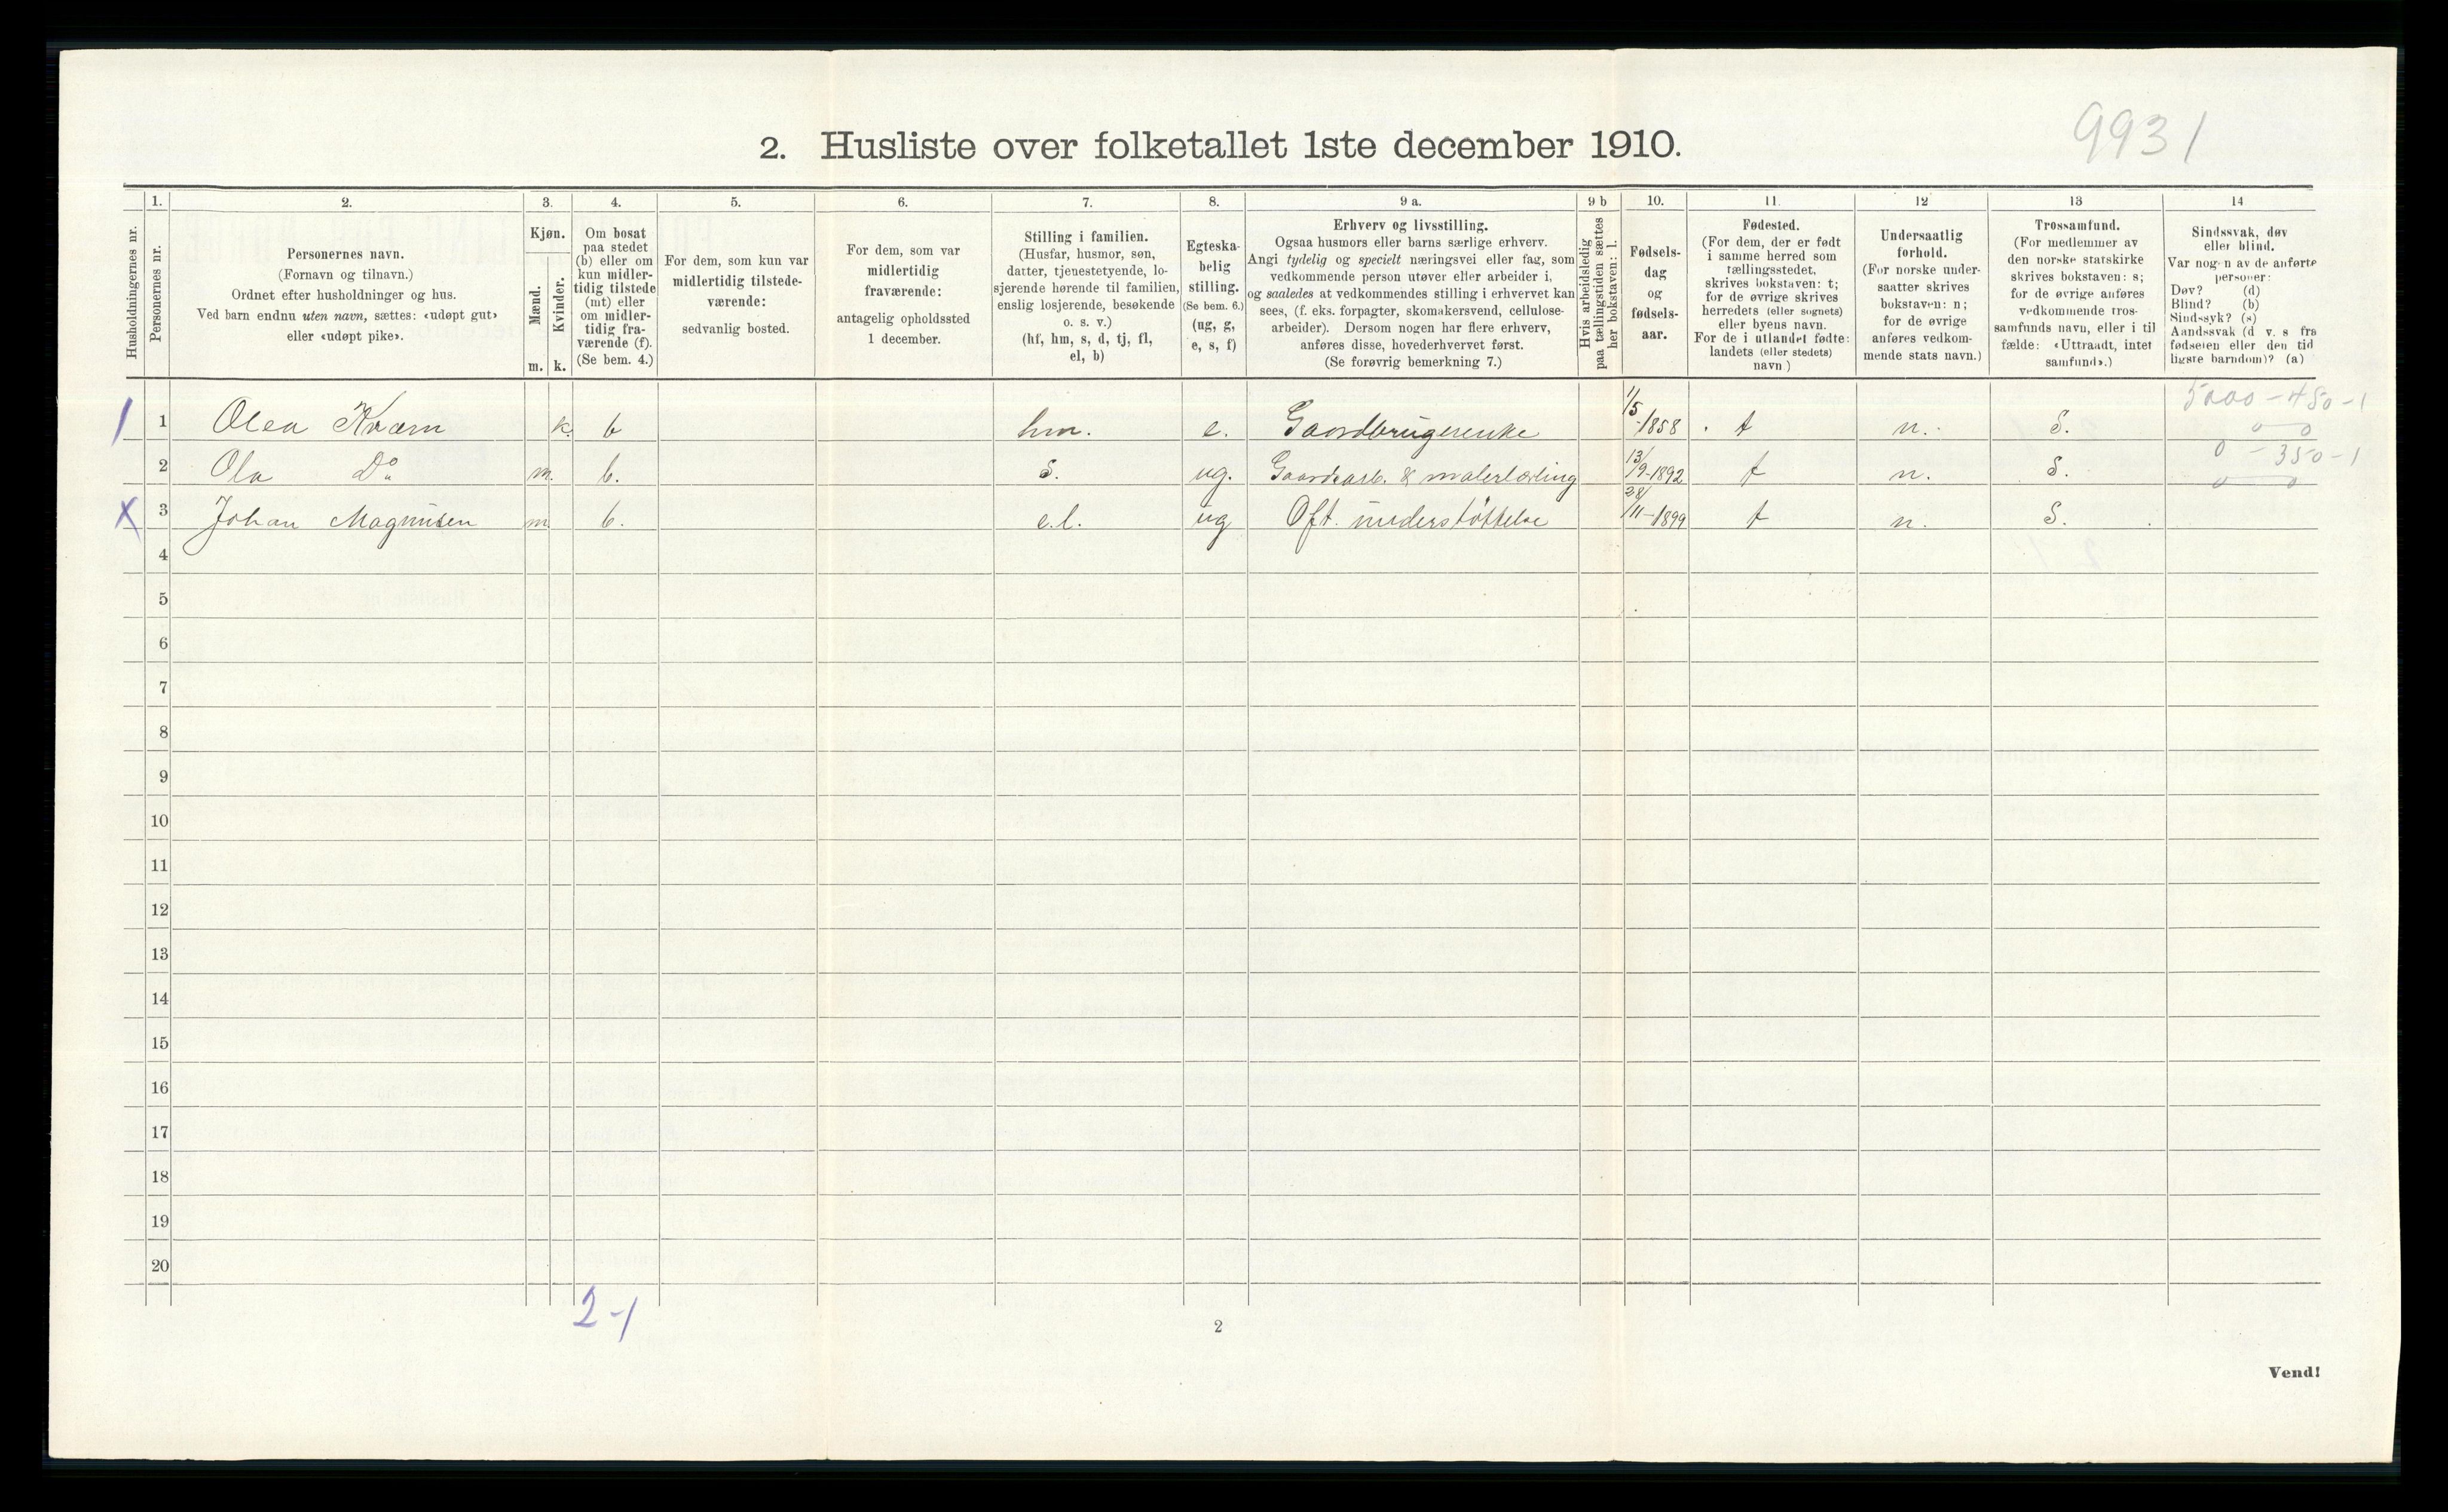 9931
2. Husliste over folketallet 1ste december 1910.
Husholdningernes nr.
1.
Personernes nr.
2.
Personernes navn.
(Fornavn og tilnavn.)
Ordnet efter husholdninger og hus.
Ved barn endnu uten navn, sættes: «udøpt gut»
eller «udøpt pike».
3.
Kjøn.
Mænd.
Kvinder.
m. k.
4.
Om bosat
paa stedet
(b) eller om
kun midler-
tidig tilstede
(mt) eller
om midler-
tidig fra-
værende (f).
(Se bem. 4.)
5.
For dem, som kun var
midlertidig tilstede-
værende:
sedvanlig bosted.
6.
For dem, som var
midlertidig
fraværende:
antagelig opholdssted
1 december.
7.
Stilling i familien.
(Husfar, husmor, søn,
datter, tjenestetyende, lo-
sjerende hørende til familien,
enslig losjerende, besøkende
o. s. v.)
(hf, hm, s, d, tj, fl,
el, b)
8.
Egteska-
belig
stilling.
(Se bem. 6.)
(ug, g,
e, s, f)
9 a.
Erhverv og livsstilling.
Ogsaa husmors eller barns særlige erhverv.
Angi tydelig og specielt næringsvei eller fag, som
vedkommende person utøver eller arbeider i,
og saaledes at vedkommendes stilling i erhvervet kan
sees, (f. eks. forpagter, skomakersvend, cellulose-
arbeider). Dersom nogen har flere erhverv,
anføres disse, hovederhvervet først.
(Se forøvrig bemerkning 7.)
9 b
Hvis arbeidsledig
paa tællingstiden sættes
her bokstaven: l.
10.
Fødsels-
dag
og
fødsels-
aar.
11.
Fødested.
(For dem, der er født
i samme herred som
tællingsstedet,
skrives bokstaven: t;
for de øvrige skrives
herredets (eller sognets)
eller byens navn.
For de i utlandet fødte:
landets (eller stedets)
navn.)
12
Undersaatlig
forhold.
(For norske under-
saatter skrives
bokstaven: n;
for de øvrige
anføres vedkom-
mende stats navn.)
13
Trossamfund.
(For medlemmer av
den norske statskirke
skrives bokstaven: s;
for de øvrige anføres
vedkommende tros-
samfunds navn, eller i til
fælde: «Uttraadt, intet
samfund».)
14
Sindssvak, døv
eller blind.
Var nogen av de anførte
personer:
Døv? (d)
Blind? (b)
Sindssyk? (s)
Aandssvak (d v. s fra
fødselen eller den tid
ligste barndom)? (a)
5000-450-1
0 0
1 1 Olea Kværn k. b hm. e. Gaardbrugerenke 1/5-1858 t n. S.
2 Ola Do m. b. s. ug. Gaardsarb. & malerlærling 13/9-1892 t n. S. 0-350-1
0 0
X 3 Johan Magnusen m b. e.l. ug Oft. understøttelse 28/11-1899 t n. S.
4
5
6
7
8
9
10
11
12
13
14
15
16
17
18
19
20
2-1
2
Vend!